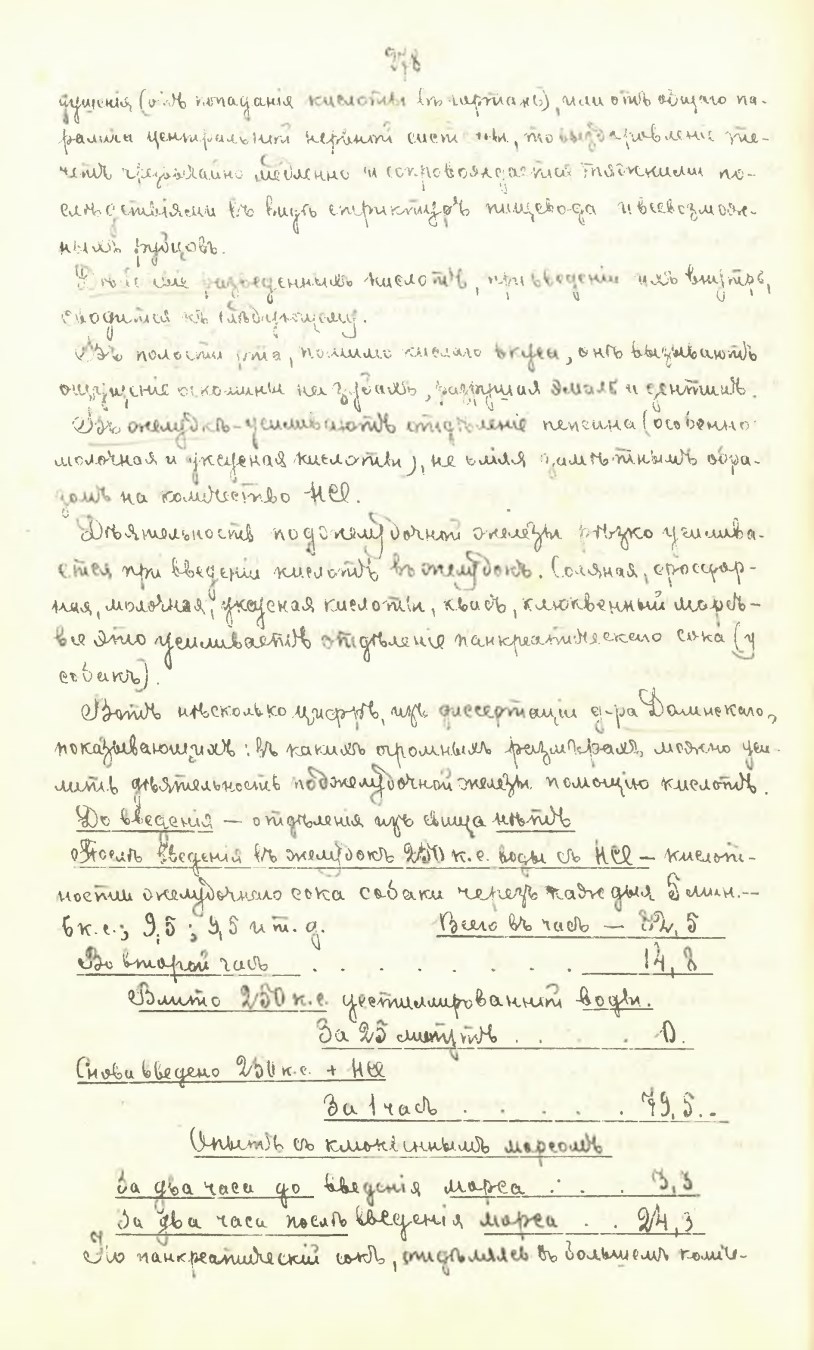 278
душенія (отъ попаданія кислоты въ гортань), или отъ общаго па-
ралича центральной нервной системы, то выздоровленіе те-
четъ чрезвычайно медленно и сопровождается тяжкими по-
слѣдствіями въ видѣ стриктуръ пищевода и всевозмож-
ныхъ рубцовъ.
разведенныхъ кислотъ, при введеніи ихъ внутрь,
сводится къ слѣдующему.
Въ полости рта, помимо кислаго вкуса, онѣ вызываютъ
ощущеніе оскомины на зубахъ, разрушая эмаль и дентинъ.
Въ желудкѣ - усиливаютъ отдѣленіе пепсина (особенно
молочная и уксусная кислоты), не вліяя замѣтнымъ обра-
зомъ на количество HCl.
Дѣятельность поджелудочной железы рѣзко усилива-
ется при введеніи кислотъ въ желудокъ. Соляная, фосфор-
ная, молочная, уксусная кислоты, квасъ, клюквенный морсъ -
все это усиливаетъ отдѣленіе панкреатическаго сока (у
собакъ).
Вотъ нѣсколько цифръ, изъ диссертаціи д-ра Долинскаго,
показывающихъ: въ какихъ огромныхъ размѣрахъ, можно уси-
лить дѣятельность поджелудочной железы помощію кислотъ.
До введенія - отдѣленія изъ свища нѣтъ
Послѣ введенія въ желудокъ 250 к.с. воды съ HCl - кислот-
ности желудочнаго сока собаки черезъ каждыя 5 мин. --
6 к.с.; 9,5; 9,5 и т.д. Всего въ часъ - 82,5
Во второй часъ . . . . . . . . 14,8
Влито 250 к.с. дестиллированной воды.
За 25 минутъ . . . 0.
Снова введено 250 к.с. + HCl
За 1 часъ . . . . . 79,5..
Опытъ съ клюквеннымъ морсомъ
За два часа до введенія морса . . . 3,3
За два часа послѣ введенія морса . . 24,3
Но панкреатическій сокъ, отдѣляясь въ большемъ количе-